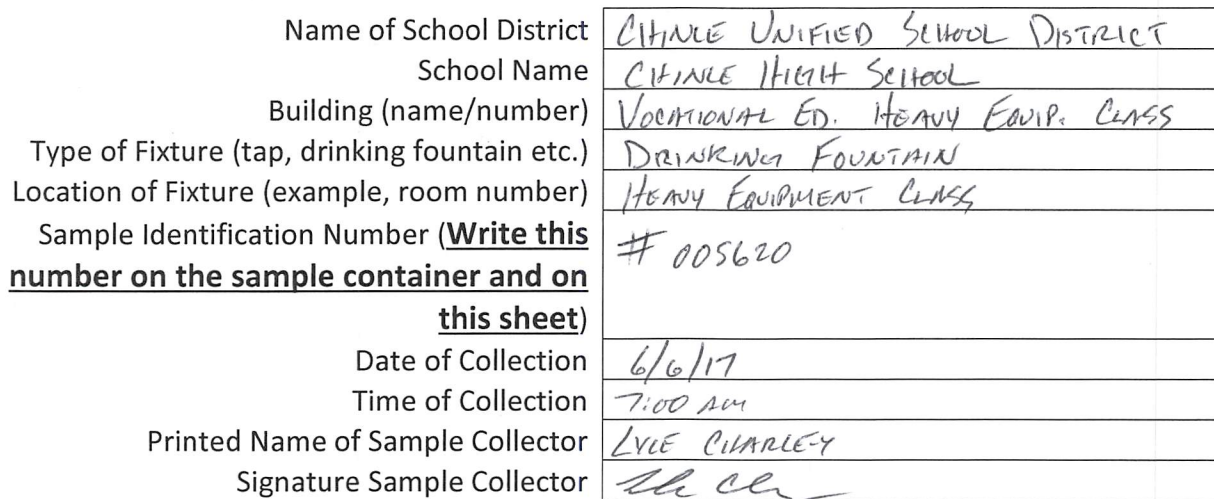 Name of School District CHINLE UNIFIED SCHOOL DISTRICT
School Name CHINLE HIGH SCHOOL
Building (name/number) VOCATIONAL ED. HEAVY EQUIP. CLASS
Type of Fixture (tap, drinking fountain etc.) DRINKING FOUNTAIN
Location of Fixture (example, room number) HEAVY EQUIPMENT CLASS
Sample Identification Number (Write this # 005620
number on the sample container and on
this sheet)
Date of Collection 6/6/17
Time of Collection 7:00 AM
Printed Name of Sample Collector LYLE CHARLEY
Signature Sample Collector